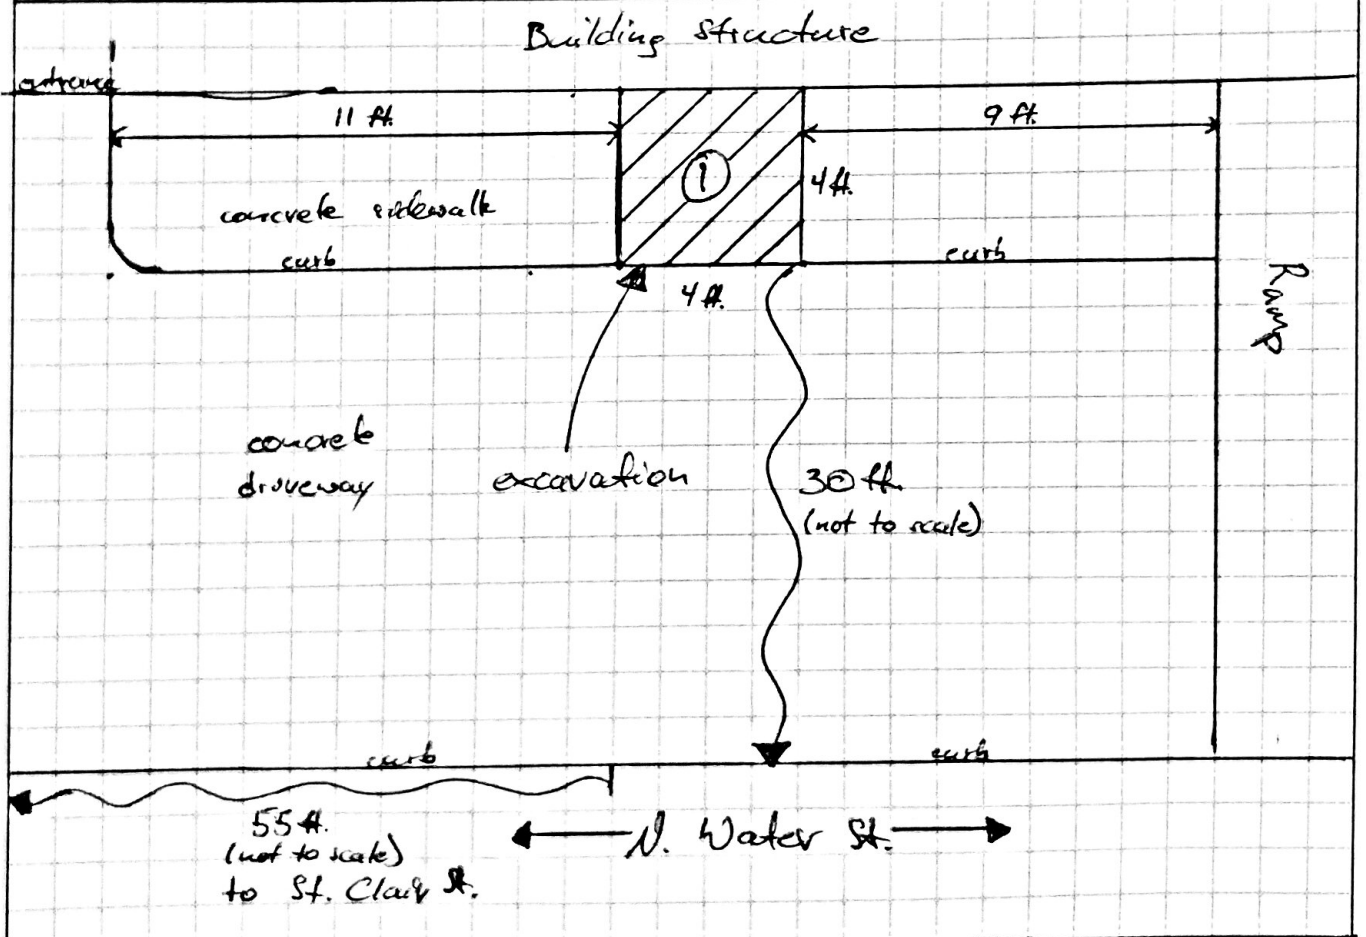 Building Structure
entrance
11 ft.
9 ft.
1
4 ft.
concrete sidewalk
curb
curb
4 ft.
Ramp
concrete
driveway
excavation
30 ft.
(not to scale)
curb
curb
55 ft.
(not to scale)
to St. Clair St.
N. Water St.